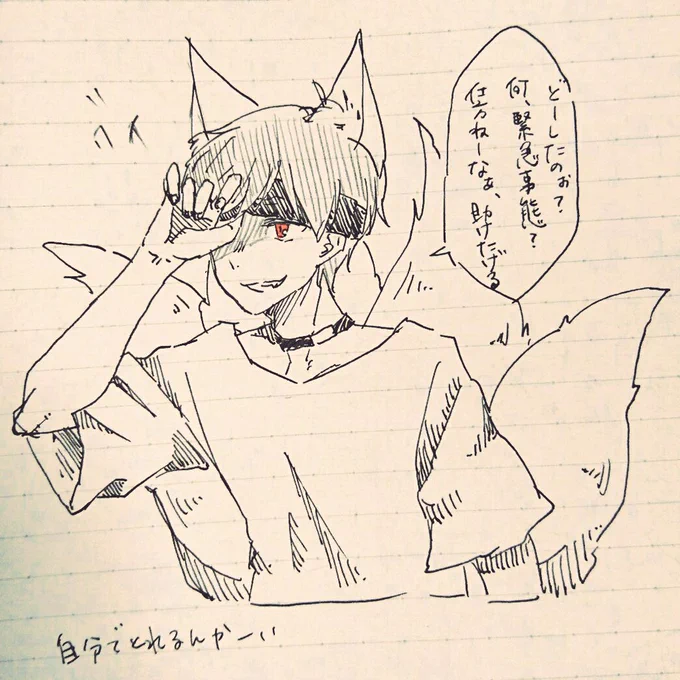 どーしたのぉ?
何、緊急事態?
仕方ねーなぁ、助けたげる
グイ
自分でとれるんかーい